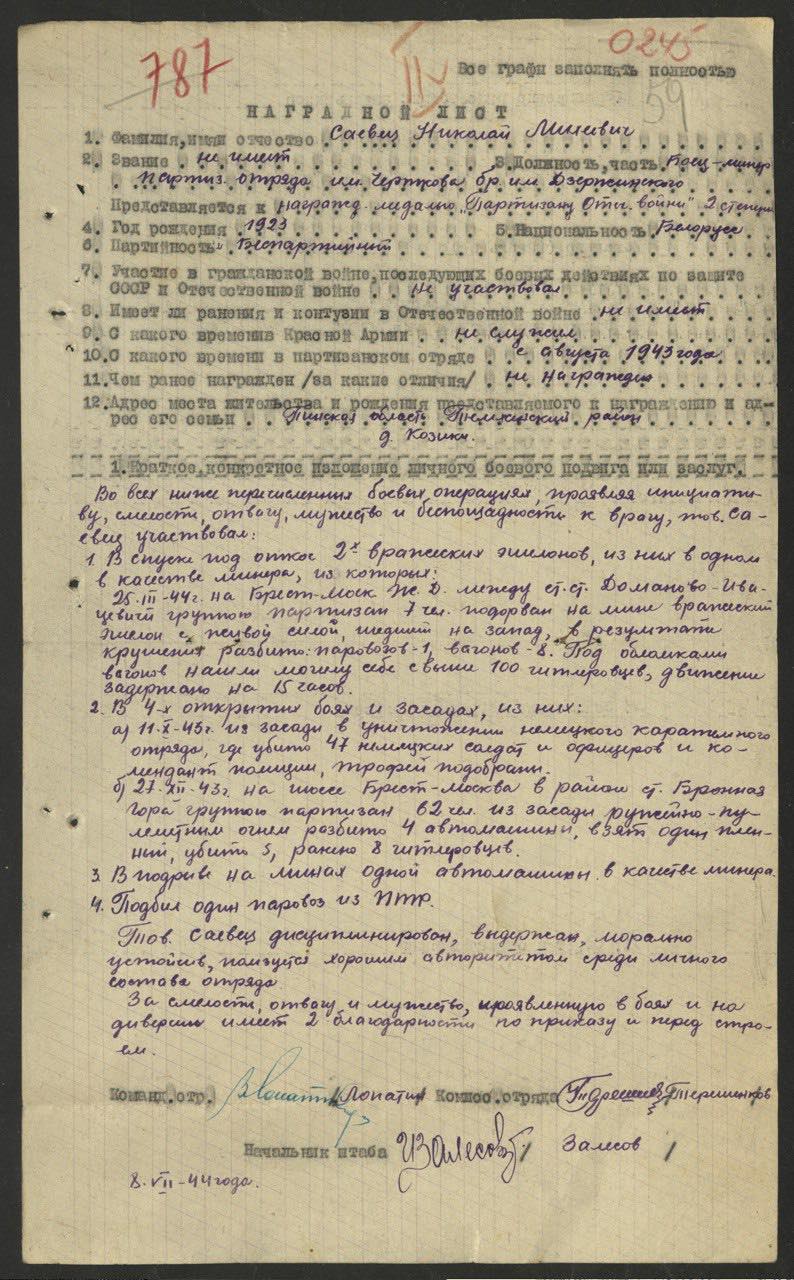 787
0245
IV
59
Все графы заполнять полностью
НАГРАДНОЙ ЛИСТ
1. Фамилия, имя и отчество Саевец Николай Минович
2. Звание не имеет 3. Должность, часть Боец-минер
партиз. отряда им. Черткова бр. им. Дзержинского
Представляется к награжд. медалью "Партизану Отеч. войны" 2 степени
4. Год рождения 1923 5. Национальность Белорусс
6. Партийность Беспартийный
7. Участие в гражданской войне, последующих боевых действиях по защите
СССР и Отечественной войне не участвовал
8. Имеет ли ранения и контузии в Отечественной войне не имеет
9. С какого времени в Красной Армии не служил
10. С какого времени в партизанском отряде с августа 1943 года
11. Чем ранее награжден /за какие отличия/ не награжден
12. Адрес места жительства и рождения представляемого к награждению и ад-
рес его семьи Пинская область Телеханский район
д. Козики.
1. Краткое, конкретное изложение личного боевого подвига или заслуг.
Во всех ниже перечисленных боевых операциях, проявляя инициати-
ву, смелость, отвагу, мужество и беспощадность к врагу, тов. Са-
евец участвовал:
1. В спуске под откос 2х вражеских эшелонов, из них в одном
в качестве минера, из которых:
25-III-44г. на Брест-Моск Ж.Д. между ст.ст. Доманово-Ива-
цевичи группою партизан 7 чел. подорван на мине вражеский
эшелон с живой силой, шедший на запад, в результате
крушения разбито: паровозов-1, вагонов-8. Под обломками
вагонов нашли могилу себе свыше 100 гитлеровцев, движение
задержано на 15 часов.
2. В 4-х открытых боях и засадах, из них:
а) 11-X-43г. из засады в уничтожении немецкого карательного
отряда, где убито 47 немецких солдат и офицеров и ко-
мендант полиции, трофеи подобраны.
б) 27-XII-43г. на шоссе Брест-Москва в районе ст. Бронная
гора группою партизан 62 чел. из засады ружейно-пу-
леметным огнем разбито 4 автомашины, взят один плен-
ный, убито 5, ранено 8 гитлеровцев.
3. В подрыве на минах одной автомашины в качестве минера.
4. Подбил один паровоз из ПТР.
Тов. Саевец дисциплинирован, выдержан, морально
устойчив, пользуется хорошим авторитетом среди личного
состава отряда.
За смелость, отвагу и мужество, проявленную в боях и на
диверсии имеет 2 благодарности по приказу и перед стро-
ем.
Команд. отр. /Лопатин/ Комисс. отряда /Терешенков/
Начальник штаба / Залесов /
8-VII-44 года.